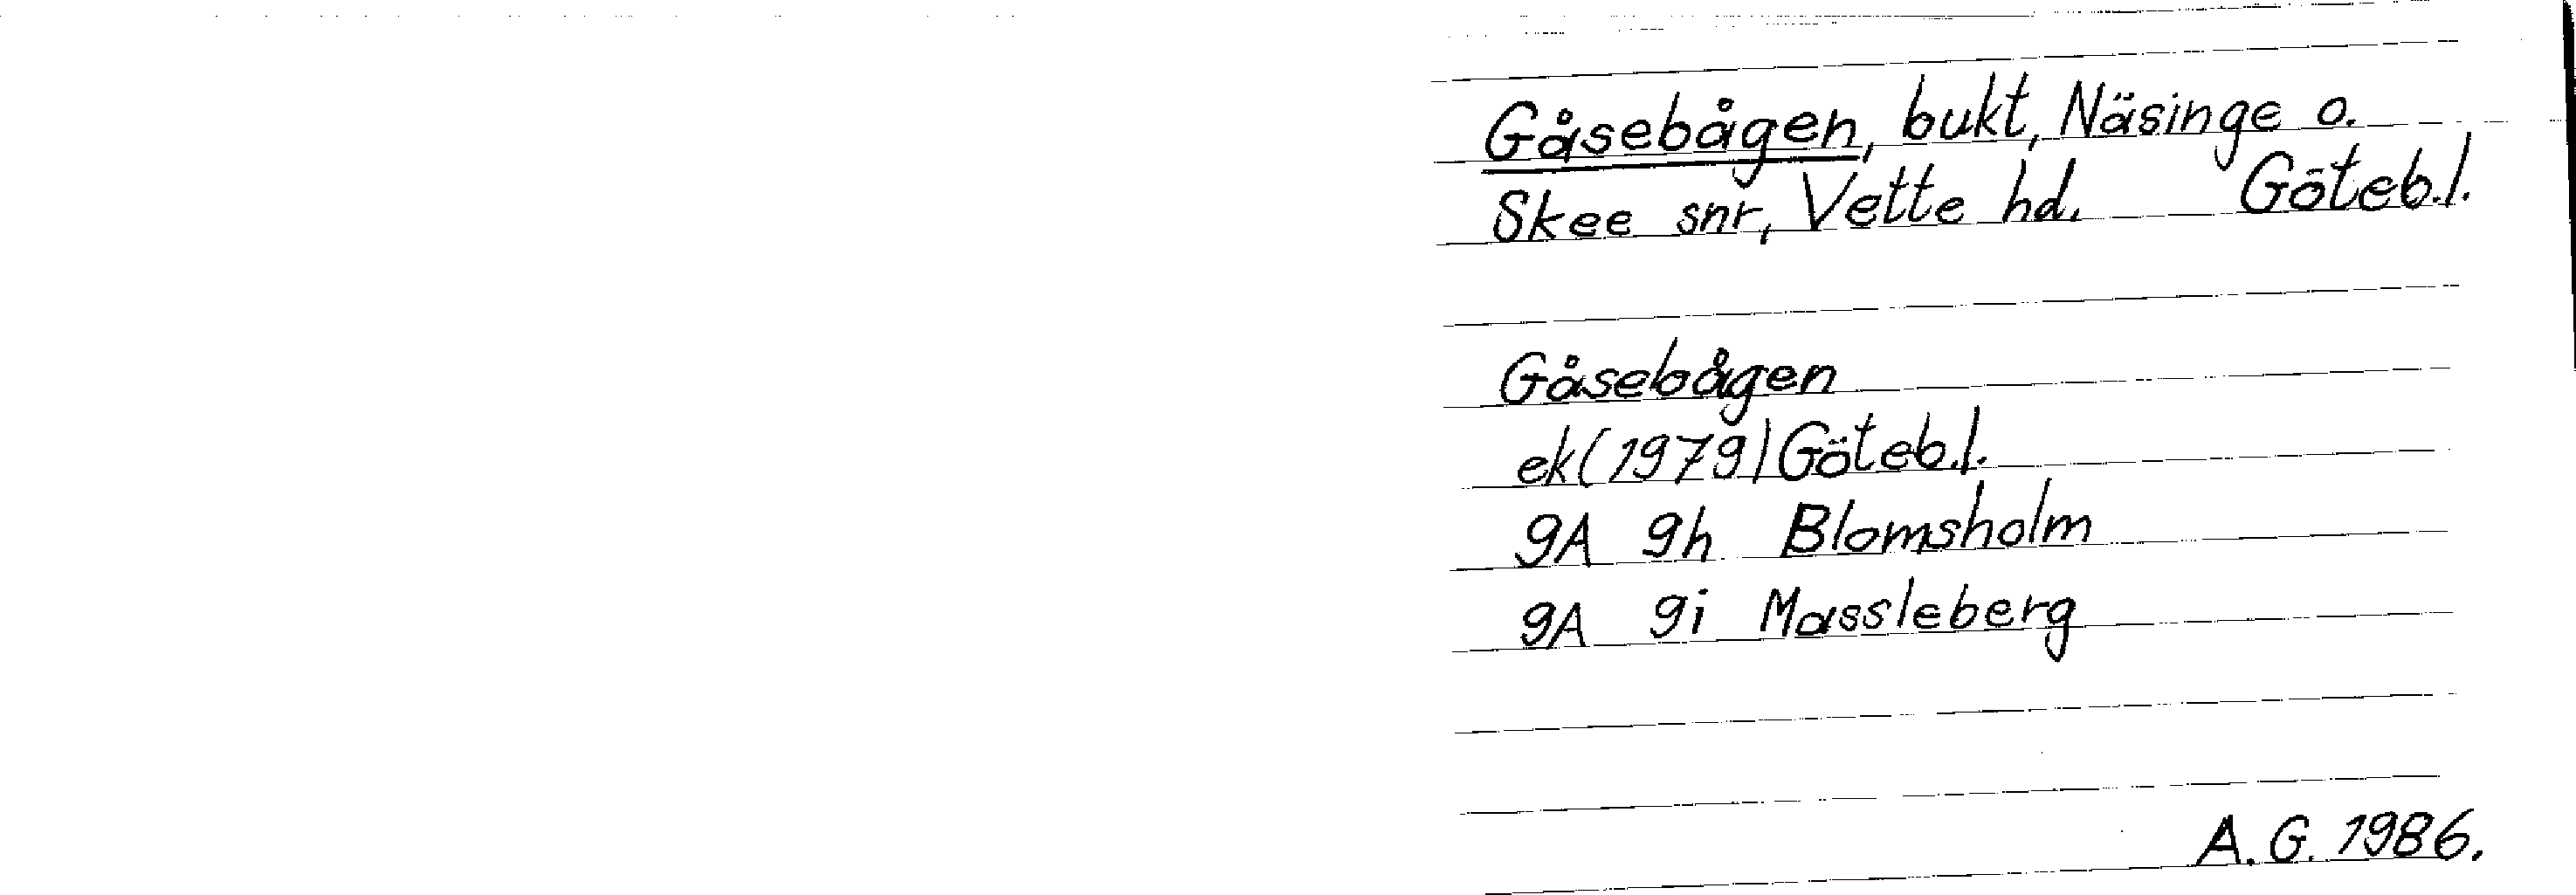 Gåsebågen, bukt, Näsinge o.
Skee snr, Vette hd. Göteb.l.
Gåsebågen
ek(1979)Göteb.l.
9A 9h Blomsholm
9A 9i Massleberg
A.G. 1986.